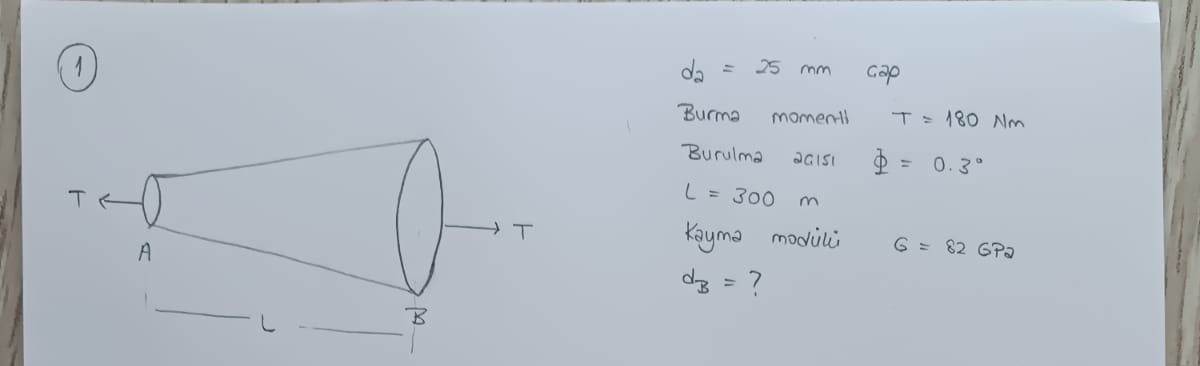 1
da = 25 mm çap
Burma momenti T = 180 Nm
Burulma açısı Φ = 0.3°
L = 300 m
Kayma modülü G = 82 GPa
dB = ?
T
T
A
B
L